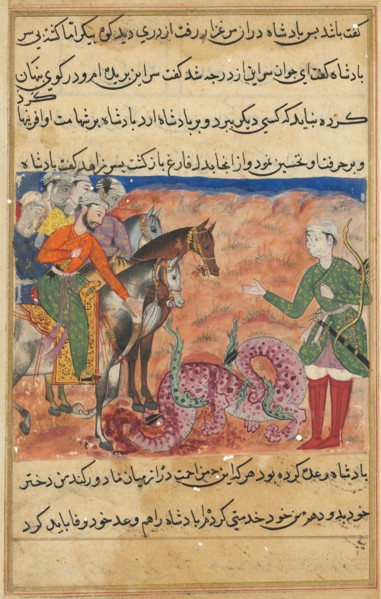 گفت باشد پسر بادشاه در از مرغزار رفت اژدری دید کوه پیکر اما کشته بی سر
بادشاه گفت ای جوان سر این اژدر چه شد گفت سر این بریده ام و در کوی پنهان
کرد
کرده نباید که کسی دیگر ببرد و بر بادشاه ارد بادشاه بر شهامت او افرینها
و بر حرفت او تحسین نمود و از انجا بدل فارغ بازگشت پسر زاهد گفت بادشاه
بادشاه وعده کرده بود هر که این چنین زحمت از میان ما دور کند من دختر
خود بدو دهم من خود خدمتی کردم بادشاه را هم وعده خود وفا باید کرد